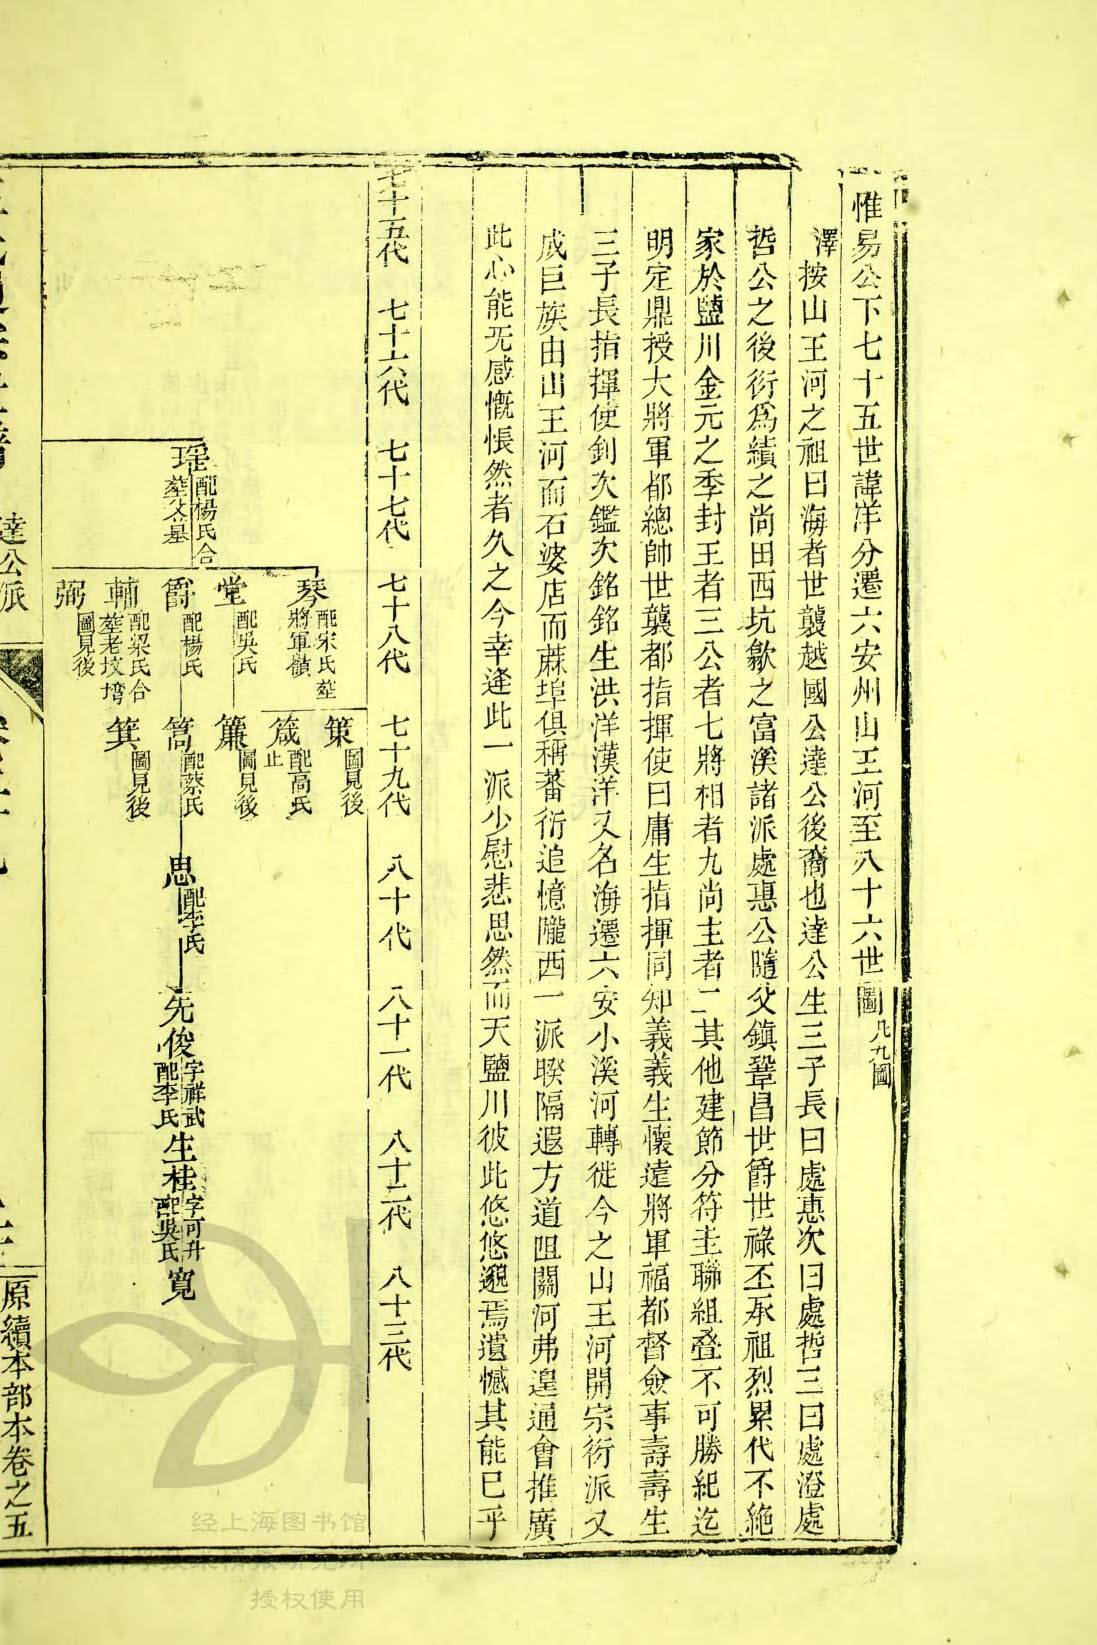 惟易公下七十五世諱洋分遷六安州山王河至八十六世圖 凡九圖
澤按山王河之祖曰海者世襲越國公達公後裔也達公生三子長曰處惠次曰處哲三曰處澄處
哲公之後衍爲績之尚田西坑歙之富溪諸派處惠公隨父鎮鞏昌世爵世祿丕承祖烈累代不絶
家於鹽川金元之季封王者三公者七將相者九尚主者二其他建節分符圭聯組叠不可勝紀迄
明定鼎授大將軍都總帥世襲都指揮使曰庸生指揮同知義義生懷遠將軍福都督僉事壽壽生
三子長指揮使釗次鑑次銘銘生洪洋漢洋又名海遷六安小溪河轉徙今之山王河開宗衍派又
成巨族由山王河而石婆店而蔴埠俱稱蕃衍追憶隴西一派暌隔遐方道阻關河弗遑通會推廣
此心能无感慨悵然者久之今幸逢此一派少慰悲思然而天鹽川彼此悠悠邈焉遺憾其能已乎
七十五代 七十六代 七十七代 七十八代 七十九代 八十代 八十一代 八十二代 八十三代
琴 配宋氏塟將軍嶺
策 圖見後
箴 配高氏 止
堂 配吳氏
簾 圖見後
瑶 配楊氏合塟父墓
爵 配楊氏
篙 配蔡氏
思 配李氏
先俊 字祥武 配李氏
生桂 字可升 配吳氏
寬
輔 配梁氏合塟老坟塆
箕 圖見後
弼 圖見後
達公派
原續本部本卷之五
经上海图书馆
授权使用